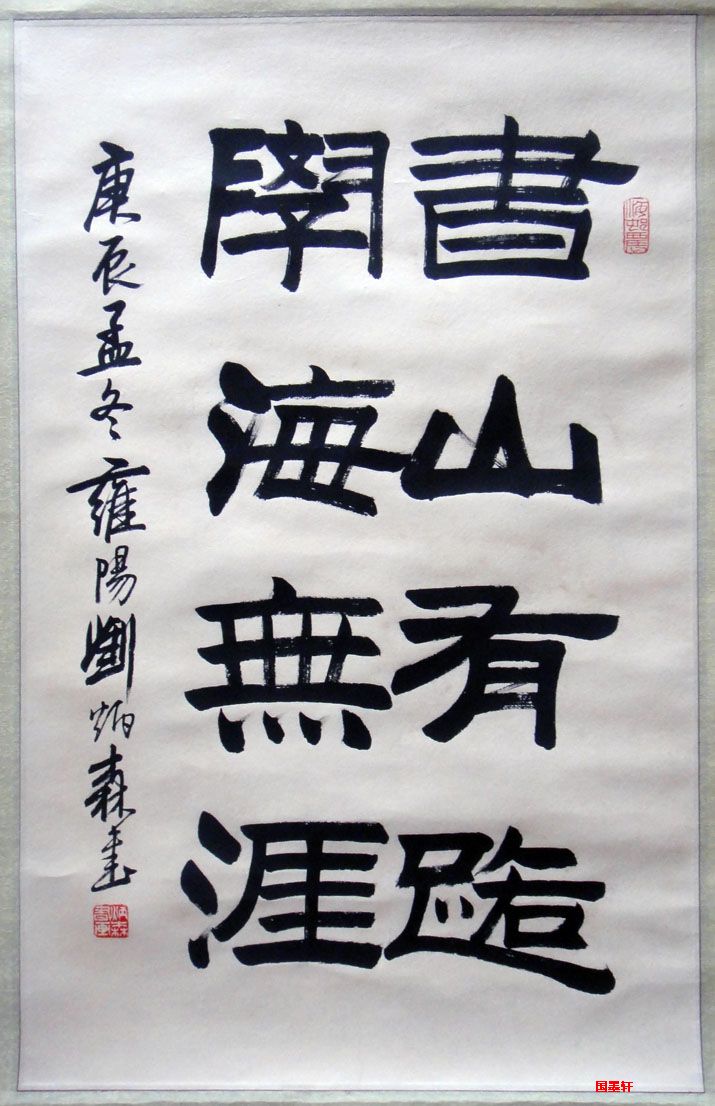 書山有路
學海無涯
庚辰孟冬雍陽劉炳森書
国墨轩